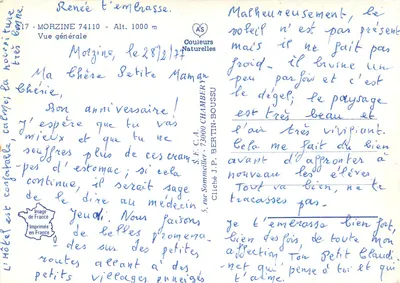 Renée t'embrasse.
17 - MORZINE 74110 - Alt. 1000 m
Vue générale
AS
Couleurs
Naturelles
Morzine, le 28/2/77
Ma Chère Petite Maman
Chérie,
Bon anniversaire!
J'espère que tu vas
mieux et que tu ne
souffres plus de ces cram-
pes d'estomac; si cela
continue, il serait sage
de le dire au médecin
jeudi. Nous faisons
de belles promena-
des sur des petites
routes allant à des
petits villages enneigés
L'Hôtel est confortable, calme, la nourriture
très bonne.
Image de
France
Imprimée
en France
S.F.C.A.
5, rue Sommeiller - 73000 CHAMBERY
Cliché J.P. BERTIN-BOUSSU
Malheureusement, le
soleil n'est pas présent
mais il ne fait pas
froid. il bruine un
peu parfois et c'est
le dégel; le paysage
est très beau et
l'air très vivifiant.
Cela me fait du bien
avant d'affronter à
nouveau les élèves.
Tout va bien, ne te
tracasses pas.
Je t'embrasse bien fort,
bien des fois, de toute mon
affection. Ton Petit Claudi-
net qui pense à toi et qui
t'aime.